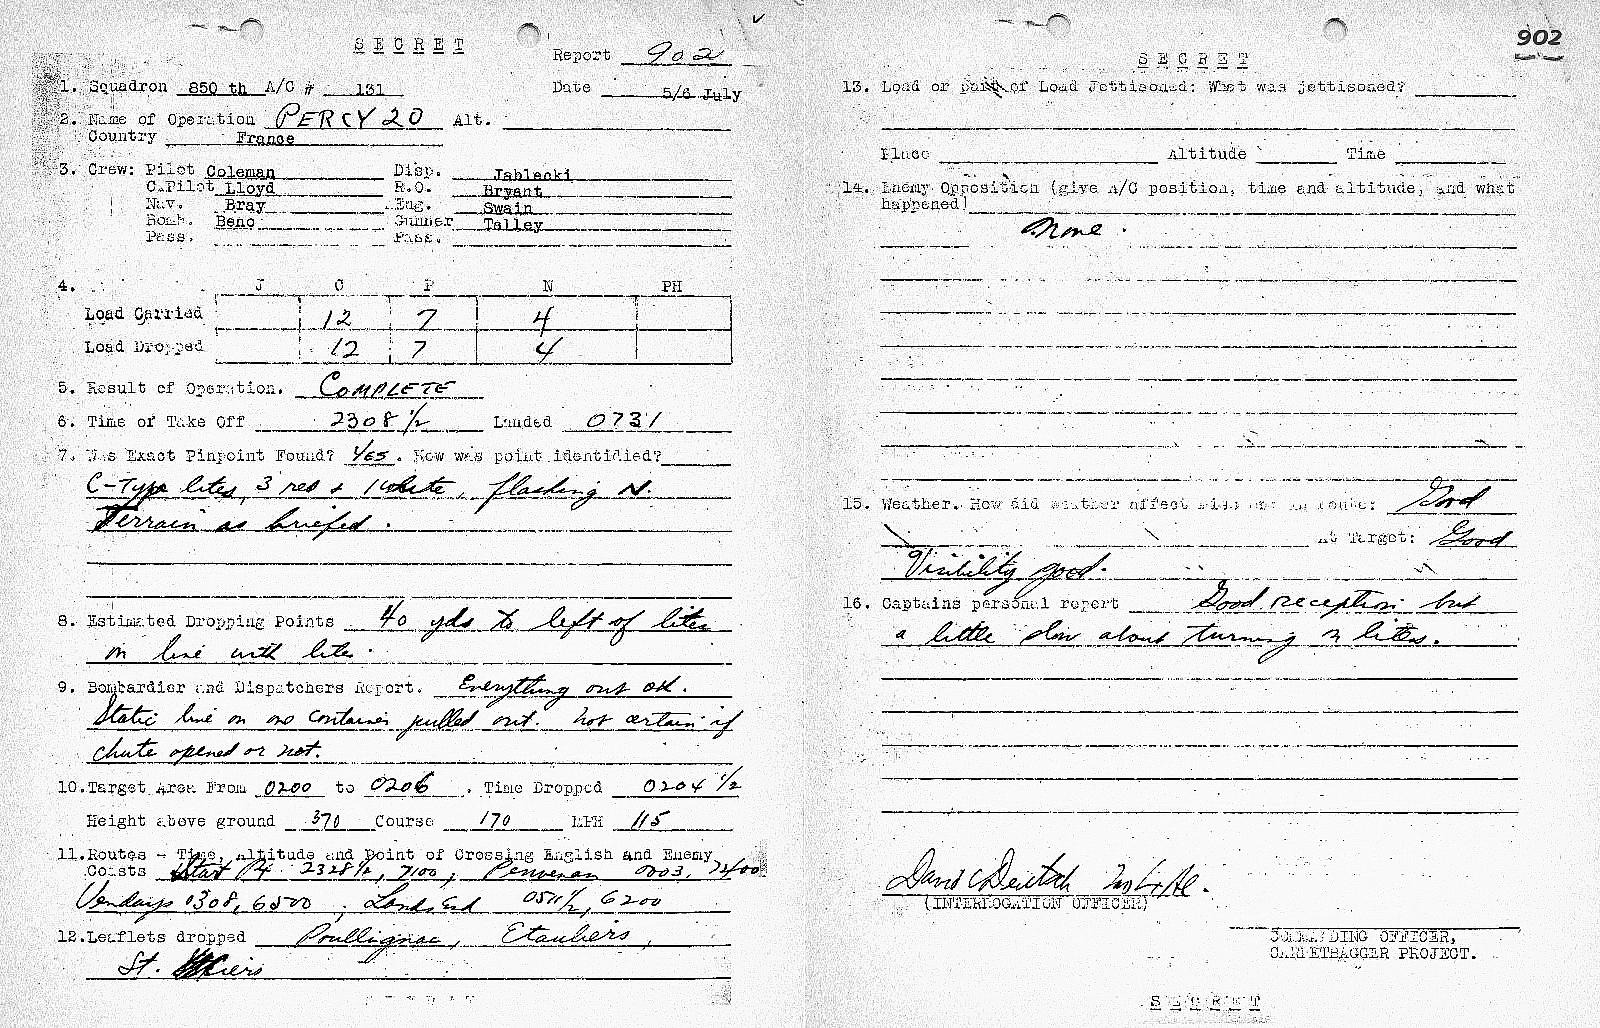 SECRET
Report 902
1. Squadron 850 th A/C # 131 Date 5/6 July
2. Name of Operation PERCY 20 Alt.
Country France
3. Crew: Pilot Coleman Disp. Jablecki
C.Pilot Lloyd R.O. Bryant
Nav. Bray Eng. Swain
Bomb. Beno Gunner Talley
Pass. Pass.
4. J C P N PH
Load Carried 12 7 4
Load Dropped 12 7 4
5. Result of Operation. COMPLETE
6. Time of Take Off 2308 1/2 Landed 0731
7. Was Exact Pinpoint Found? YES. How was point identified?
C-Type lites, 3 red + 1 white, flashing N.
Terrain as briefed.
8. Estimated Dropping Points 40 yds to left of lites
on line with lites.
9. Bombardier and Dispatchers Report. Everything out ok.
Static line on one container pulled out. Not certain if
chute opened or not.
10. Target Area From 0200 to 0206. Time Dropped 0204 1/2
Height above ground 370 Course 170 MPH 115
11. Routes - Time, Altitude and Point of Crossing English and Enemy
Coasts Start Pt 2328 1/2, 7100, Penvenan 0003, 7400
Vendays 0308, 6500; Lands End 0511 1/2, 6200
12. Leaflets dropped Poullignac, Etauliers,
St. Ciers
SECRET
902
SECRET
13. Load or part of Load Jettisoned: What was jettisoned?
Place Altitude Time
14. Enemy Opposition (give A/C position, time and altitude, and what
happened)
None.
15. Weather. How did weather affect en route: Good
At Target: Good
Visibility good.
16. Captains personal report Good reception but
a little slow about turning on lites.
David C Deutsch
(INTERROGATION OFFICER)
COMMANDING OFFICER,
CARPETBAGGER PROJECT.
SECRET